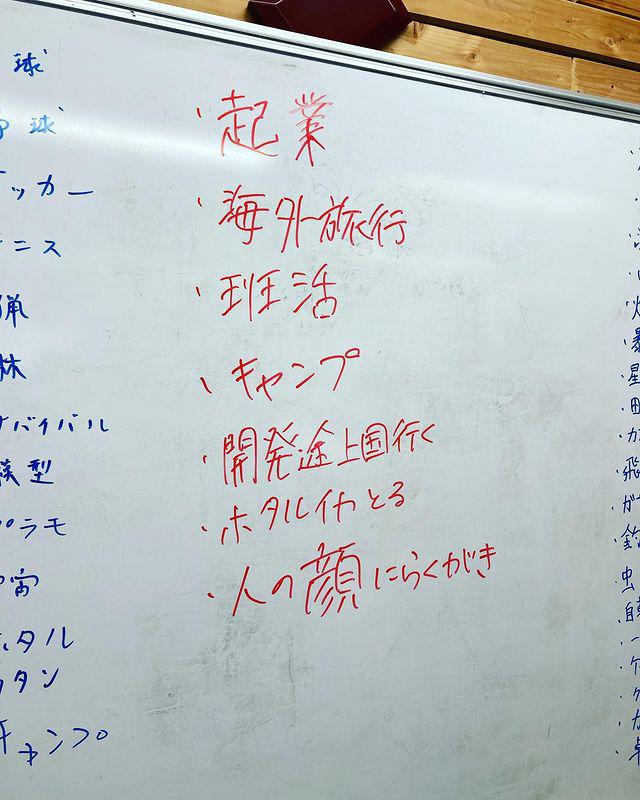 球
球
ッカー
ニス
猟
林
バイバル
模型
プラモ
宙
タル
タン
キャンプ
・起業
・海外旅行
・班活
・キャンプ
・開発途上国行く
・ホタルイカとる
・人の顔にらくがき
星
飛
釣
虫